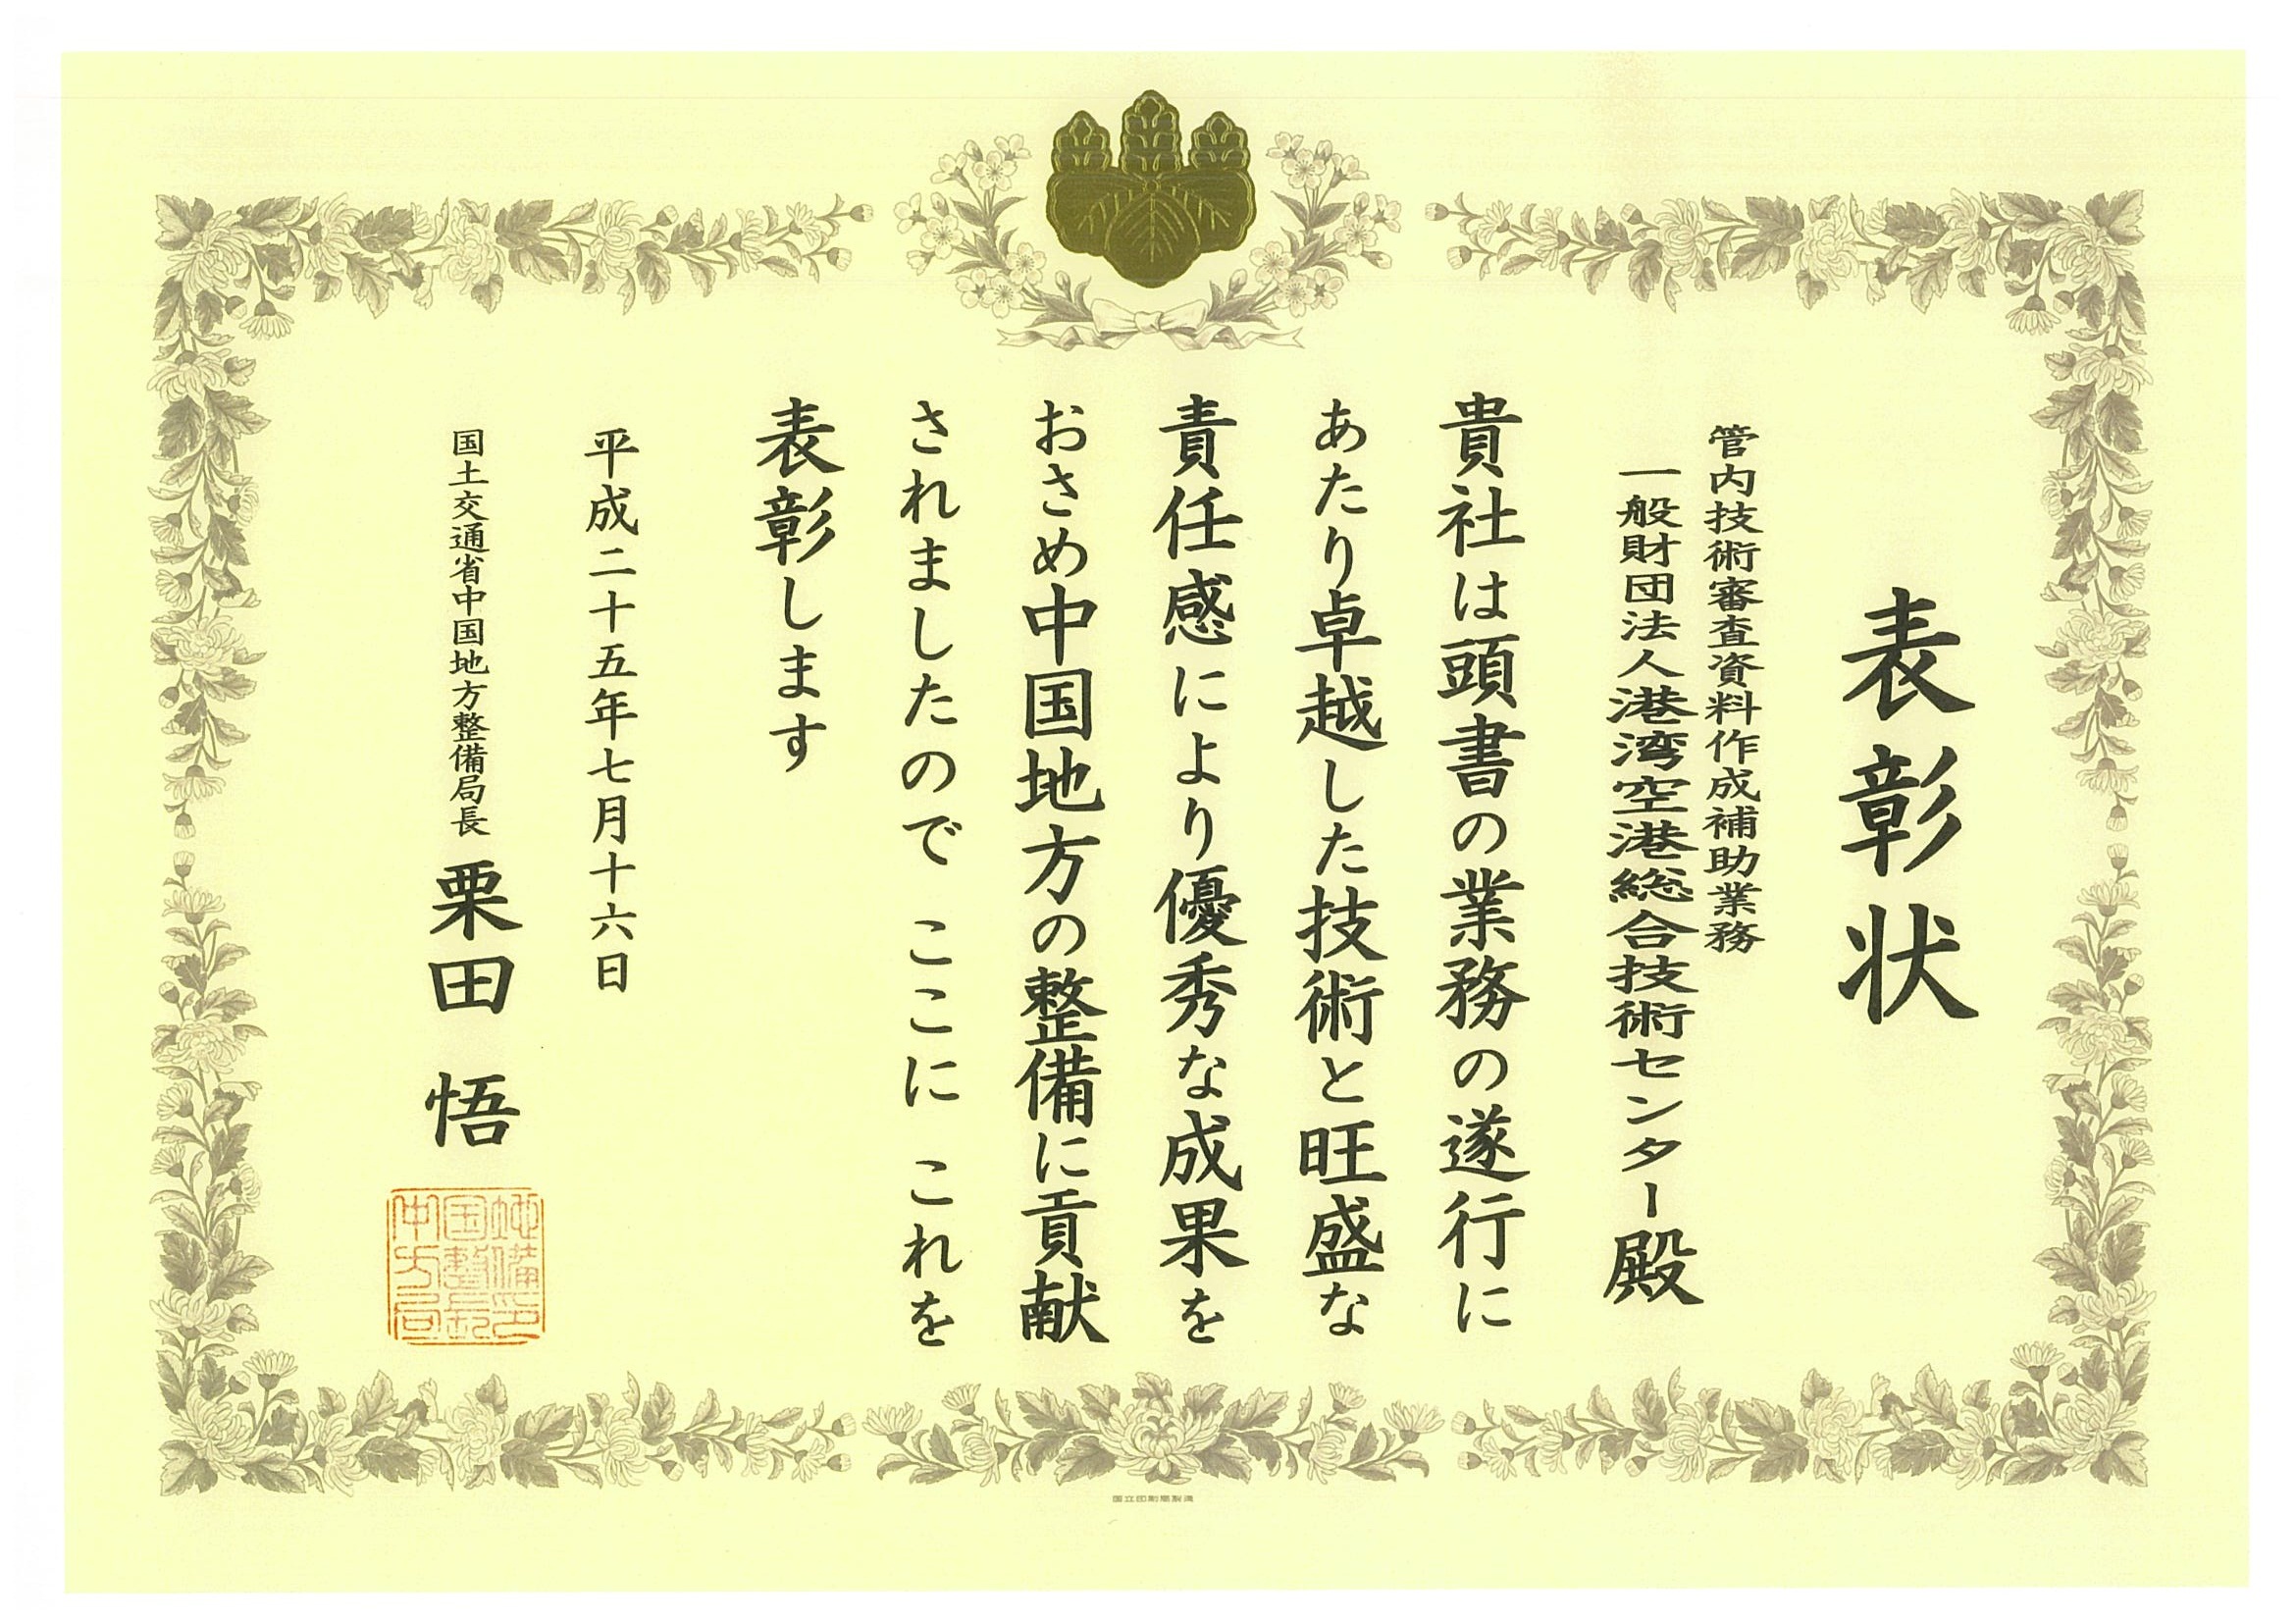 表彰状
管内技術審査資料作成補助業務
一般財団法人港湾空港総合技術センター殿
貴社は頭書の業務の遂行に
あたり卓越した技術と旺盛な
責任感により優秀な成果を
おさめ中国地方の整備に貢献
されましたので ここに これを
表彰します
平成二十五年七月十六日
国土交通省中国地方整備局長 栗田 悟
国立印刷局製造